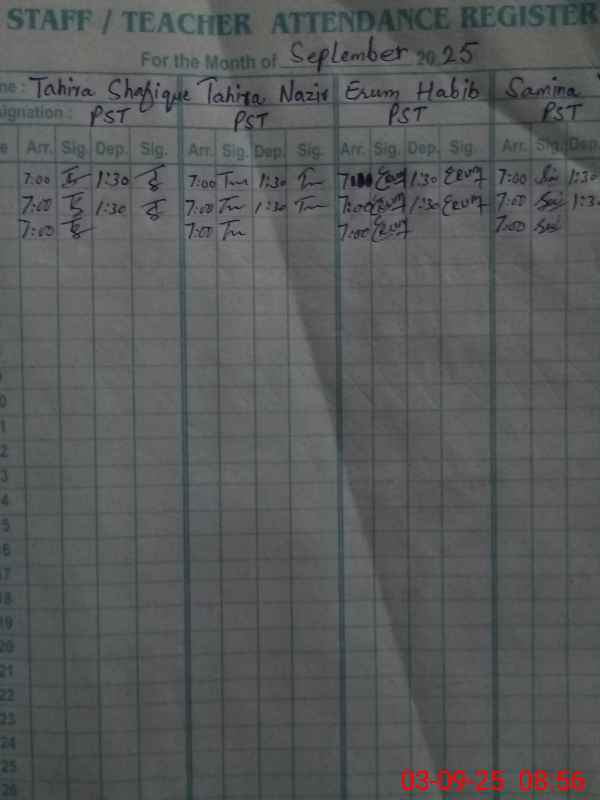 STAFF / TEACHER ATTENDANCE REGISTER
For the Month of September 2025
me : Tahira Shafique Tahira Nazir Erum Habib Samina
signation : PST PST PST PST
e Arr. Sig. Dep. Sig. Arr. Sig. Dep. Sig. Arr. Sig. Dep. Sig. Arr. Sig. Dep.
7:00 1:30 7:00 1:30 Erum 1:30 Erum 7:00 1:30
7:00 1:30 7:00 1:30 7:00 Erum 1:30 Erum 7:00 1:3
7:00 7:00 7:00 Erum 7:00
0
1
2
3
4
5
6
17
18
19
20
21
22
23
24
25
26
03-09-25 08:56